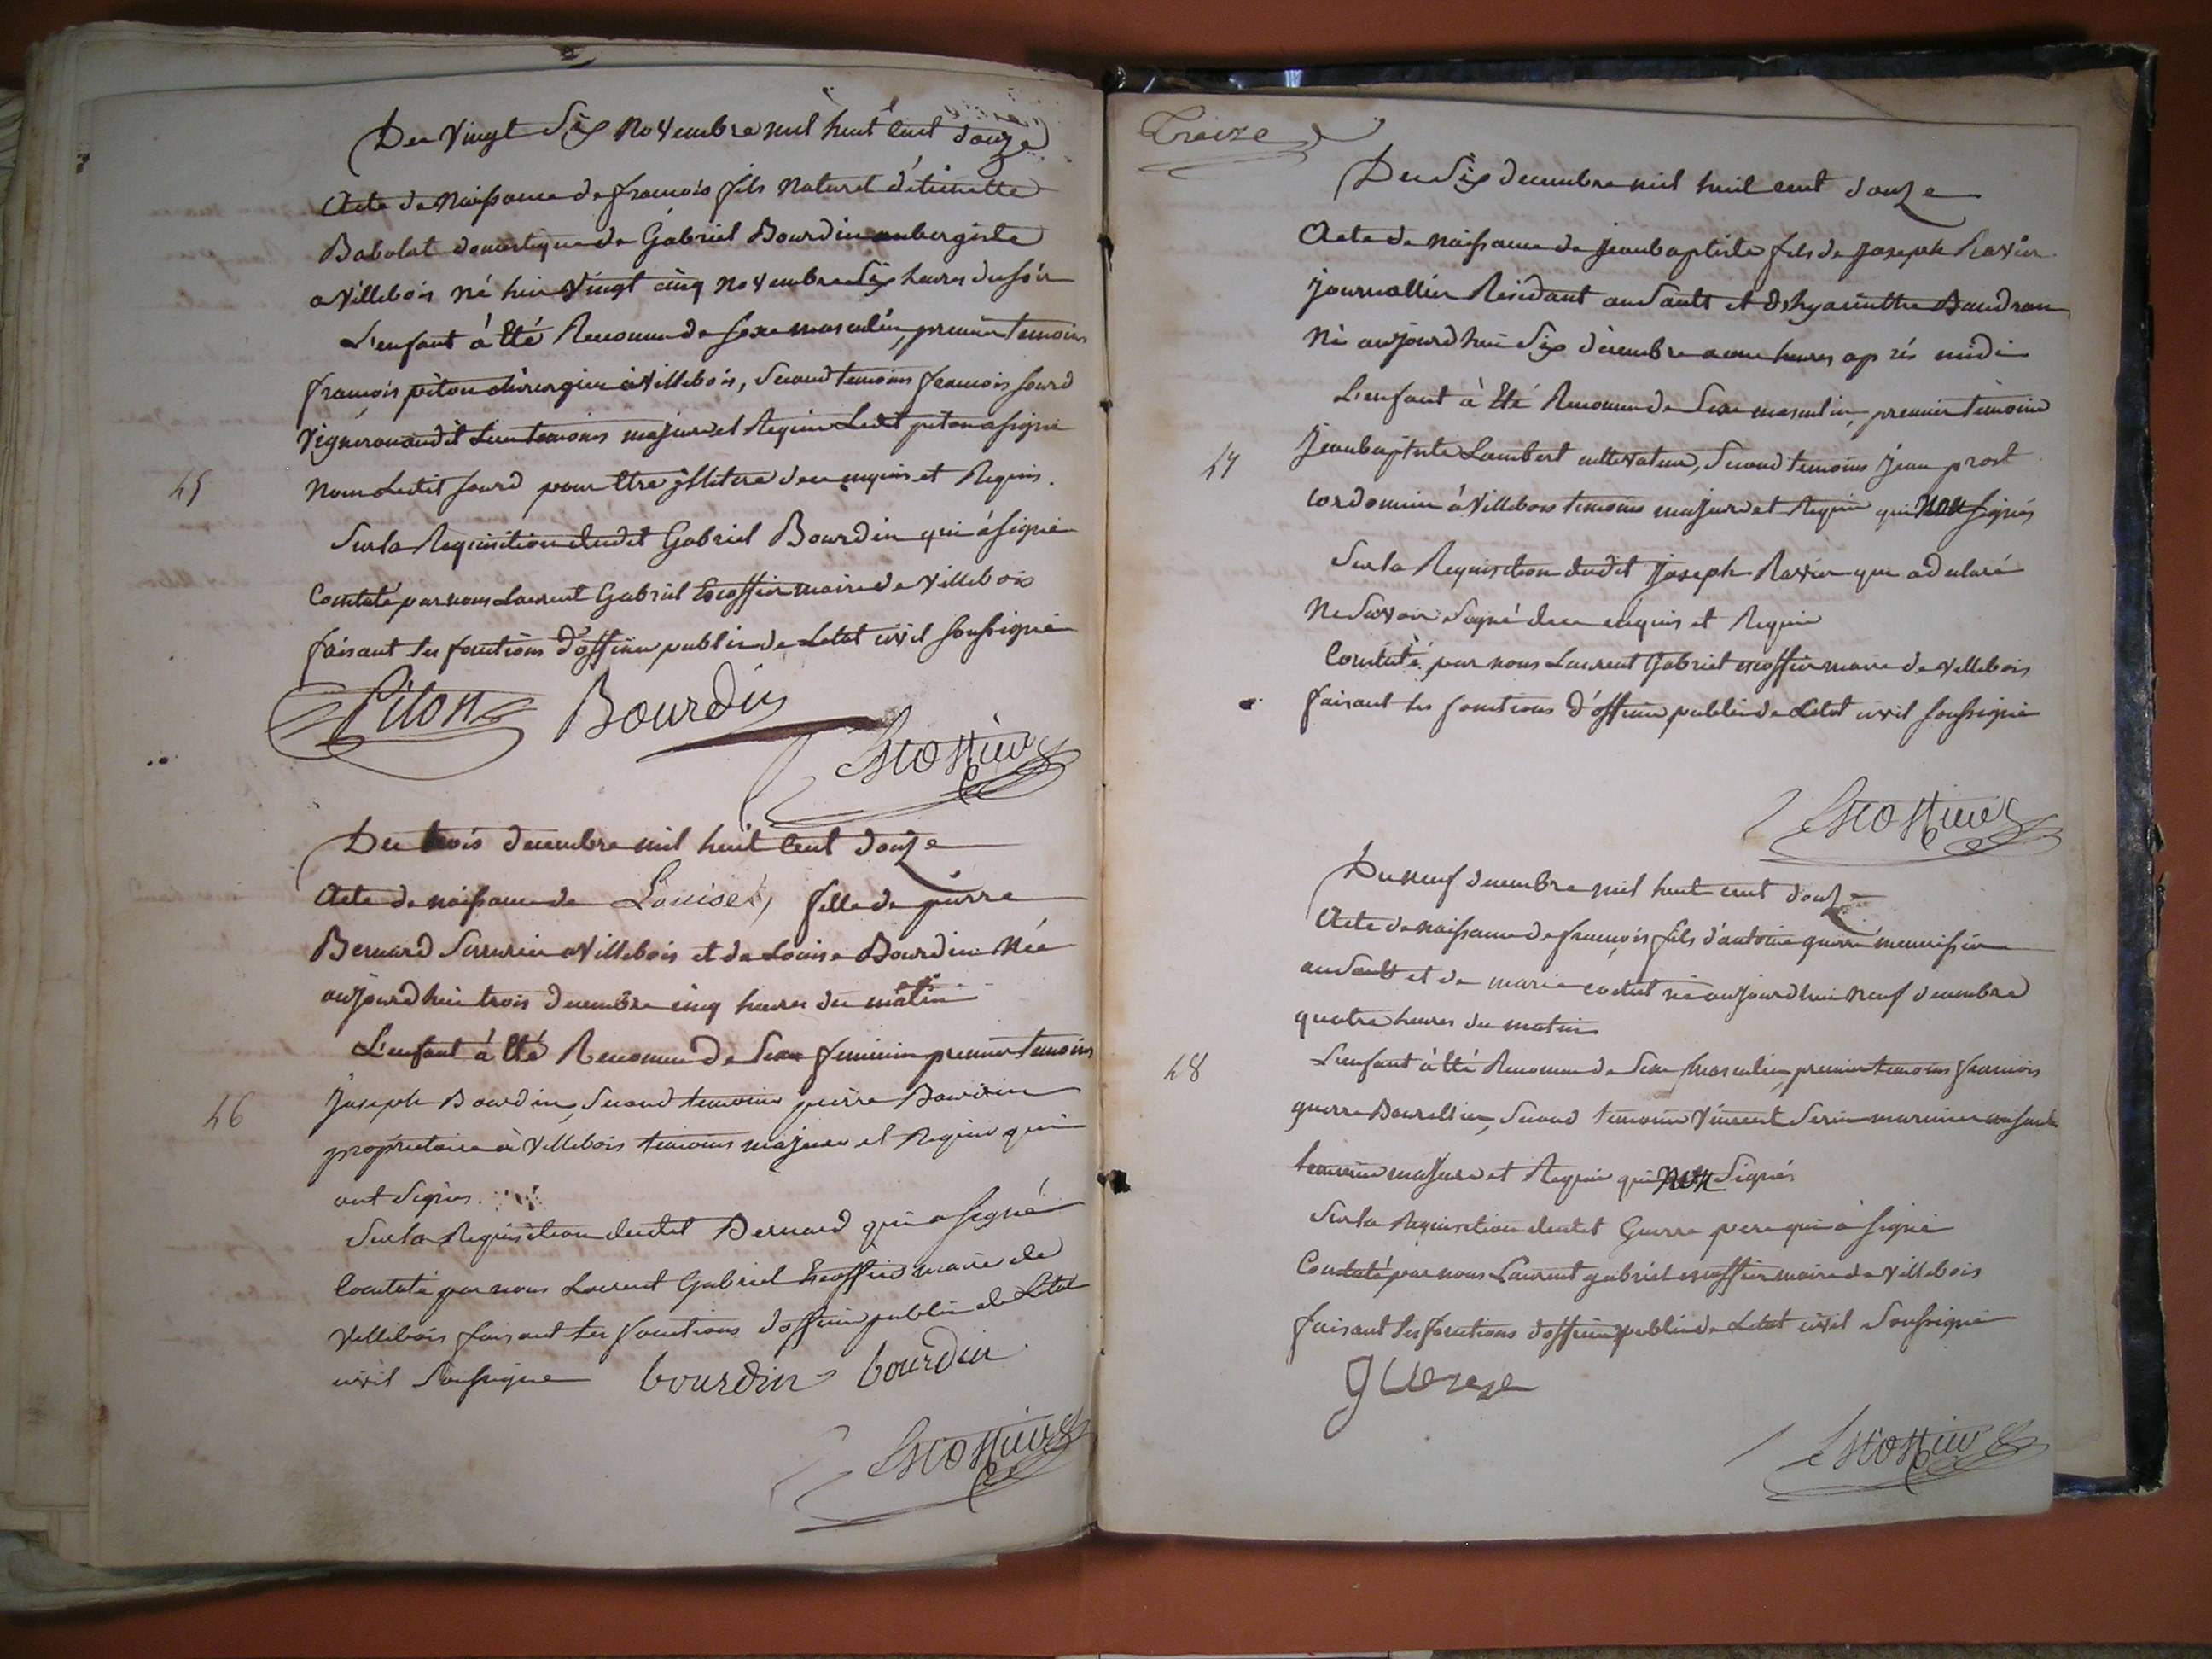 Du vingt Six novembre mil huit cent douze
Acte de naissance de françois fils naturel d'étiennette
Babolat domestique de Gabriel Bourdin aubergiste
a villebois né hier vingt cinq novembre Six heures du soir
L'enfant à été Reconnu de sexe masculin, premier temoins
françois piton chirurgien à villebois, Second temoins francois sourd
vigneron audit Lieu temoins majeurs et Requis Ledit piton a signé
45
non Ledit sourd pour être illitere de ce enquis et Requis.
Sur la Requisition dudit Gabriel Bourdin qui à signé
Constaté par nous Laurent Gabriel Escoffier maire de villebois
faisant les fonctions d'officier public de Letat civil soussigné
Piton Bourdin
Escoffier
Du trois decembre mil huit cent douze
Acte de naissance de Louise, fille de pierre
Bernard Serrurier a villebois et de Louise Bourdin née
aujourdhui trois decembre cinq heures du matin
L'enfant à été Reconnu de Sexe feminin premier temoins
46
Joseph Bourdin, Second temoins pierre Bourdin
propriétaire à villebois temoins majeurs et Requis qui
ont Signés.
Sur la Requisition dudit Bernard qui a signé
Constaté par nous Laurent Gabriel Escoffier maire de
villebois faisant les fonctions d'officier public de Letat
civil soussigné bourdin bourdin
Escoffier
Treize
Du Six decembre mil huit cent douze
Acte de naissance de jeanbaptiste fils de Joseph Ravier
journallier Résidant au Sault et d'hyacinthe Baudran
né aujourdhui Six décembre heures après midi
L'enfant à été Reconnu de Sexe masculin, premier temoins
47
Jeanbaptiste Lambert cultivateur, Second temoins jean prost
cordonnier à villebois temoins majeurs et Requis qui non signés
Sur la Requisition dudit Joseph Ravier qui a déclaré
ne Savoir Signé de ce enquis et Requis
Constaté par nous Laurent Gabriel escoffier maire de villebois
faisant les fonctions d'officier public de Letat civil soussigné
Escoffier
Du neuf decembre mil huit cent douze
Acte de naissance de françois fils d'antoine guerre menuisier
au Sault et de marie né aujourdhui neuf decembre
quatre heures du matin
48
L'enfant à été Reconnu de Sexe masculin, premier temoins francois
guerre Bourellier, Second temoins vincent Serin marinier au Sault
temoins majeurs et Requis qui non Signés
Sur la Requisition dudit Guerre pere qui à signé
Constaté par nous Laurent gabriel escoffier maire de villebois
faisant les fonctions d'officier public de Letat civil Soussigné
Guerre
Escoffier